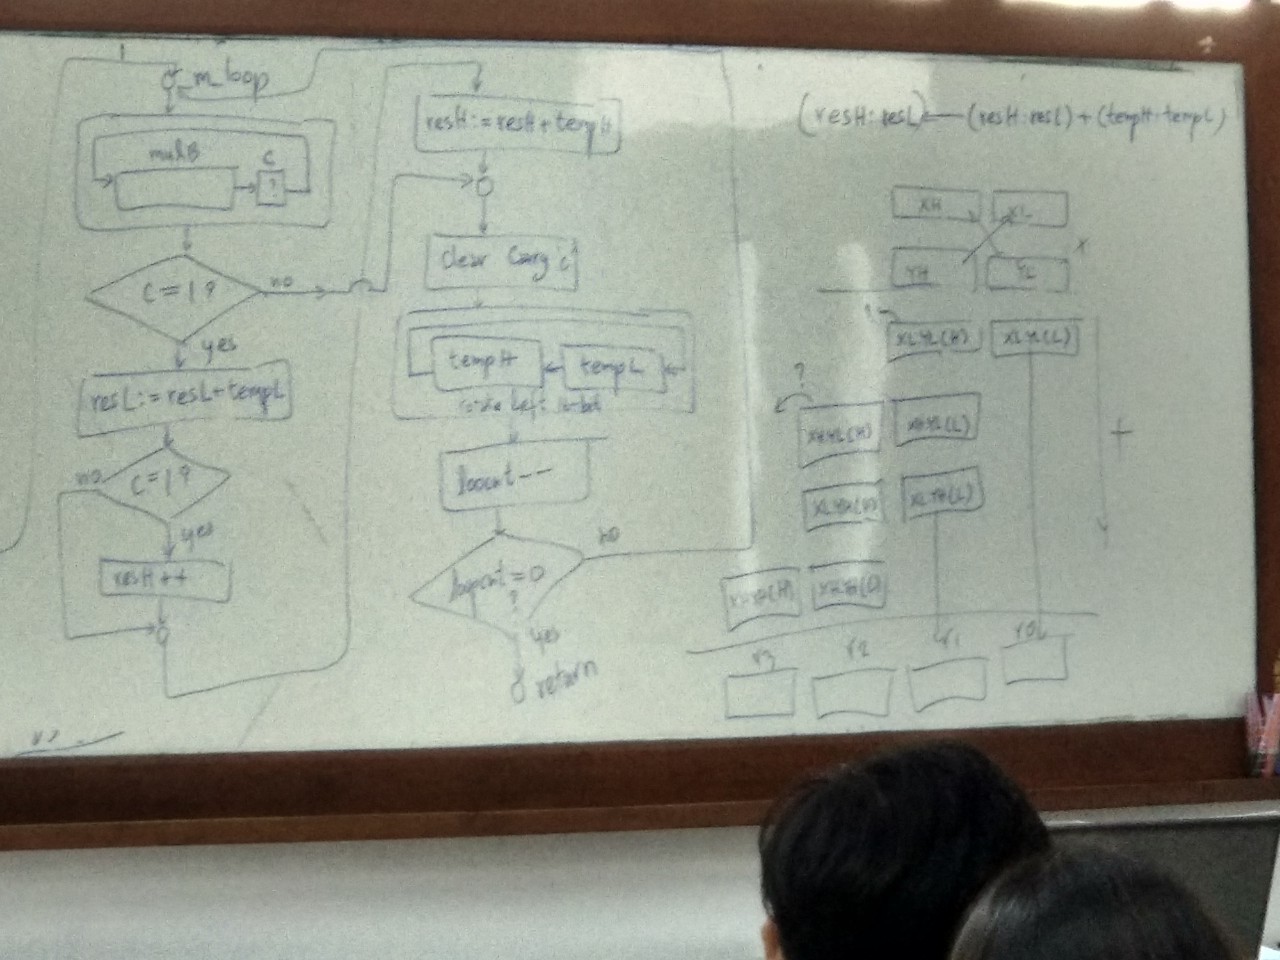 m_loop
mulB
C
?
C=1?
no
yes
resL:=resL+tempL
C=1?
no
yes
resH++
resH:=resH+tempH
clear Carry
tempH
tempL
left
loopcnt--
loopcnt=0
?
no
yes
return
(resH:resL)←(resH:resL)+(tempH:tempL)
XH XL
YH YL
x
XLYL(H) XLYL(L)
?
XHYL(H) XHYL(L)
XLYH(H) XLYH(L)
+
XHYH(H) XHYH(L)
r3 r2 r1 r0